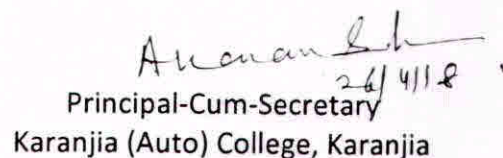 26/4/18
Principal-Cum-Secretary
Karanjia (Auto) College, Karanjia